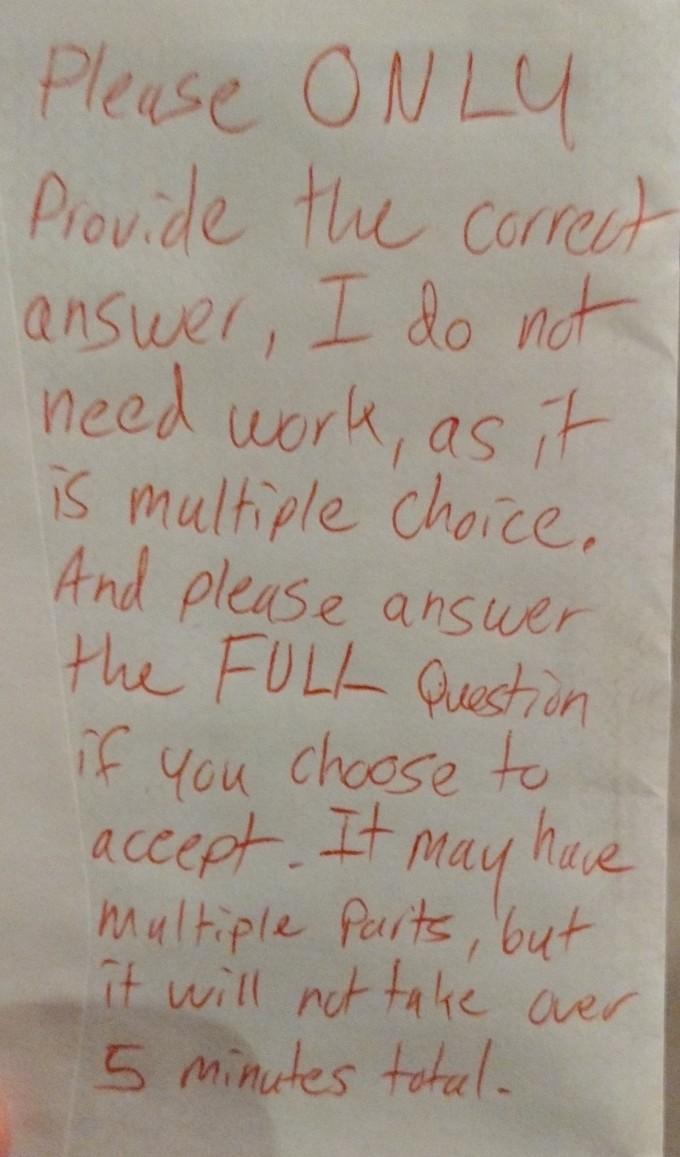 Please ONLY
Provide the correct
answer, I do not
need work, as it
is multiple choice.
And please answer
the FULL Question
if you choose to
accept. It may have
multiple parts, but
it will not take over
5 minutes total.